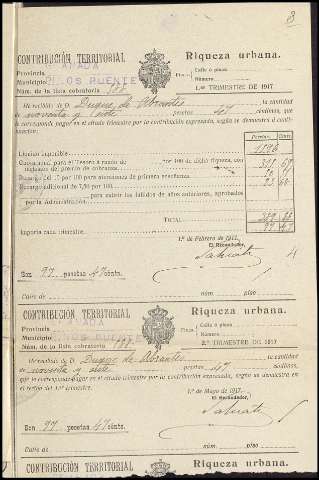 8
CONTRIBUCIÓN TERRITORIAL
Riqueza urbana.
Provincia
Municipio PINOS PUENTE
Núm. de la lista cobratoria 188
Calle ó plaza
Número
1.er TRIMESTRE DE 1917
He recibido de D. Duque de Abrantes la cantidad
de noventa y siete pesetas 47 céntimos, que
le corresponde pagar en el citado trimestre por la contribución expresada, según se demuestra á continuación.
Pesetas Cénts.
Líquido imponible
Cuota anual para el Tesoro á razón de por 100 de dicha riqueza, con
inclusión del premio de cobranza
Recargo del por 100 para atenciones de primera enseñanza.
Recargo adicional de 7,50 por 100.
para cubrir los fallidos de años anteriores, aprobados
por la Administración
TOTAL
Importa cada trimestre 97 47
1.º de Febrero de 1917.
El Recaudador,
Son 97 pesetas 47 cénts.
Calle de núm. piso
CONTRIBUCIÓN TERRITORIAL
Riqueza urbana.
Provincia
Municipio PINOS PUENTE
Núm. de la lista cobratoria 188
Calle ó plaza
Número
2.º TRIMESTRE DE 1917
He recibido de D. Duque de Abrantes la cantidad
de noventa y siete pesetas 47 céntimos,
que le corresponde pagar en el citado trimestre por la contribución expresada, según se demuestra en
el recibo del 1.er trimestre.
1.º de Mayo de 1917.
El Recaudador,
Son 97 pesetas 47 cénts.
Calle de núm. piso
CONTRIBUCIÓN TERRITORIAL
Riqueza urbana.